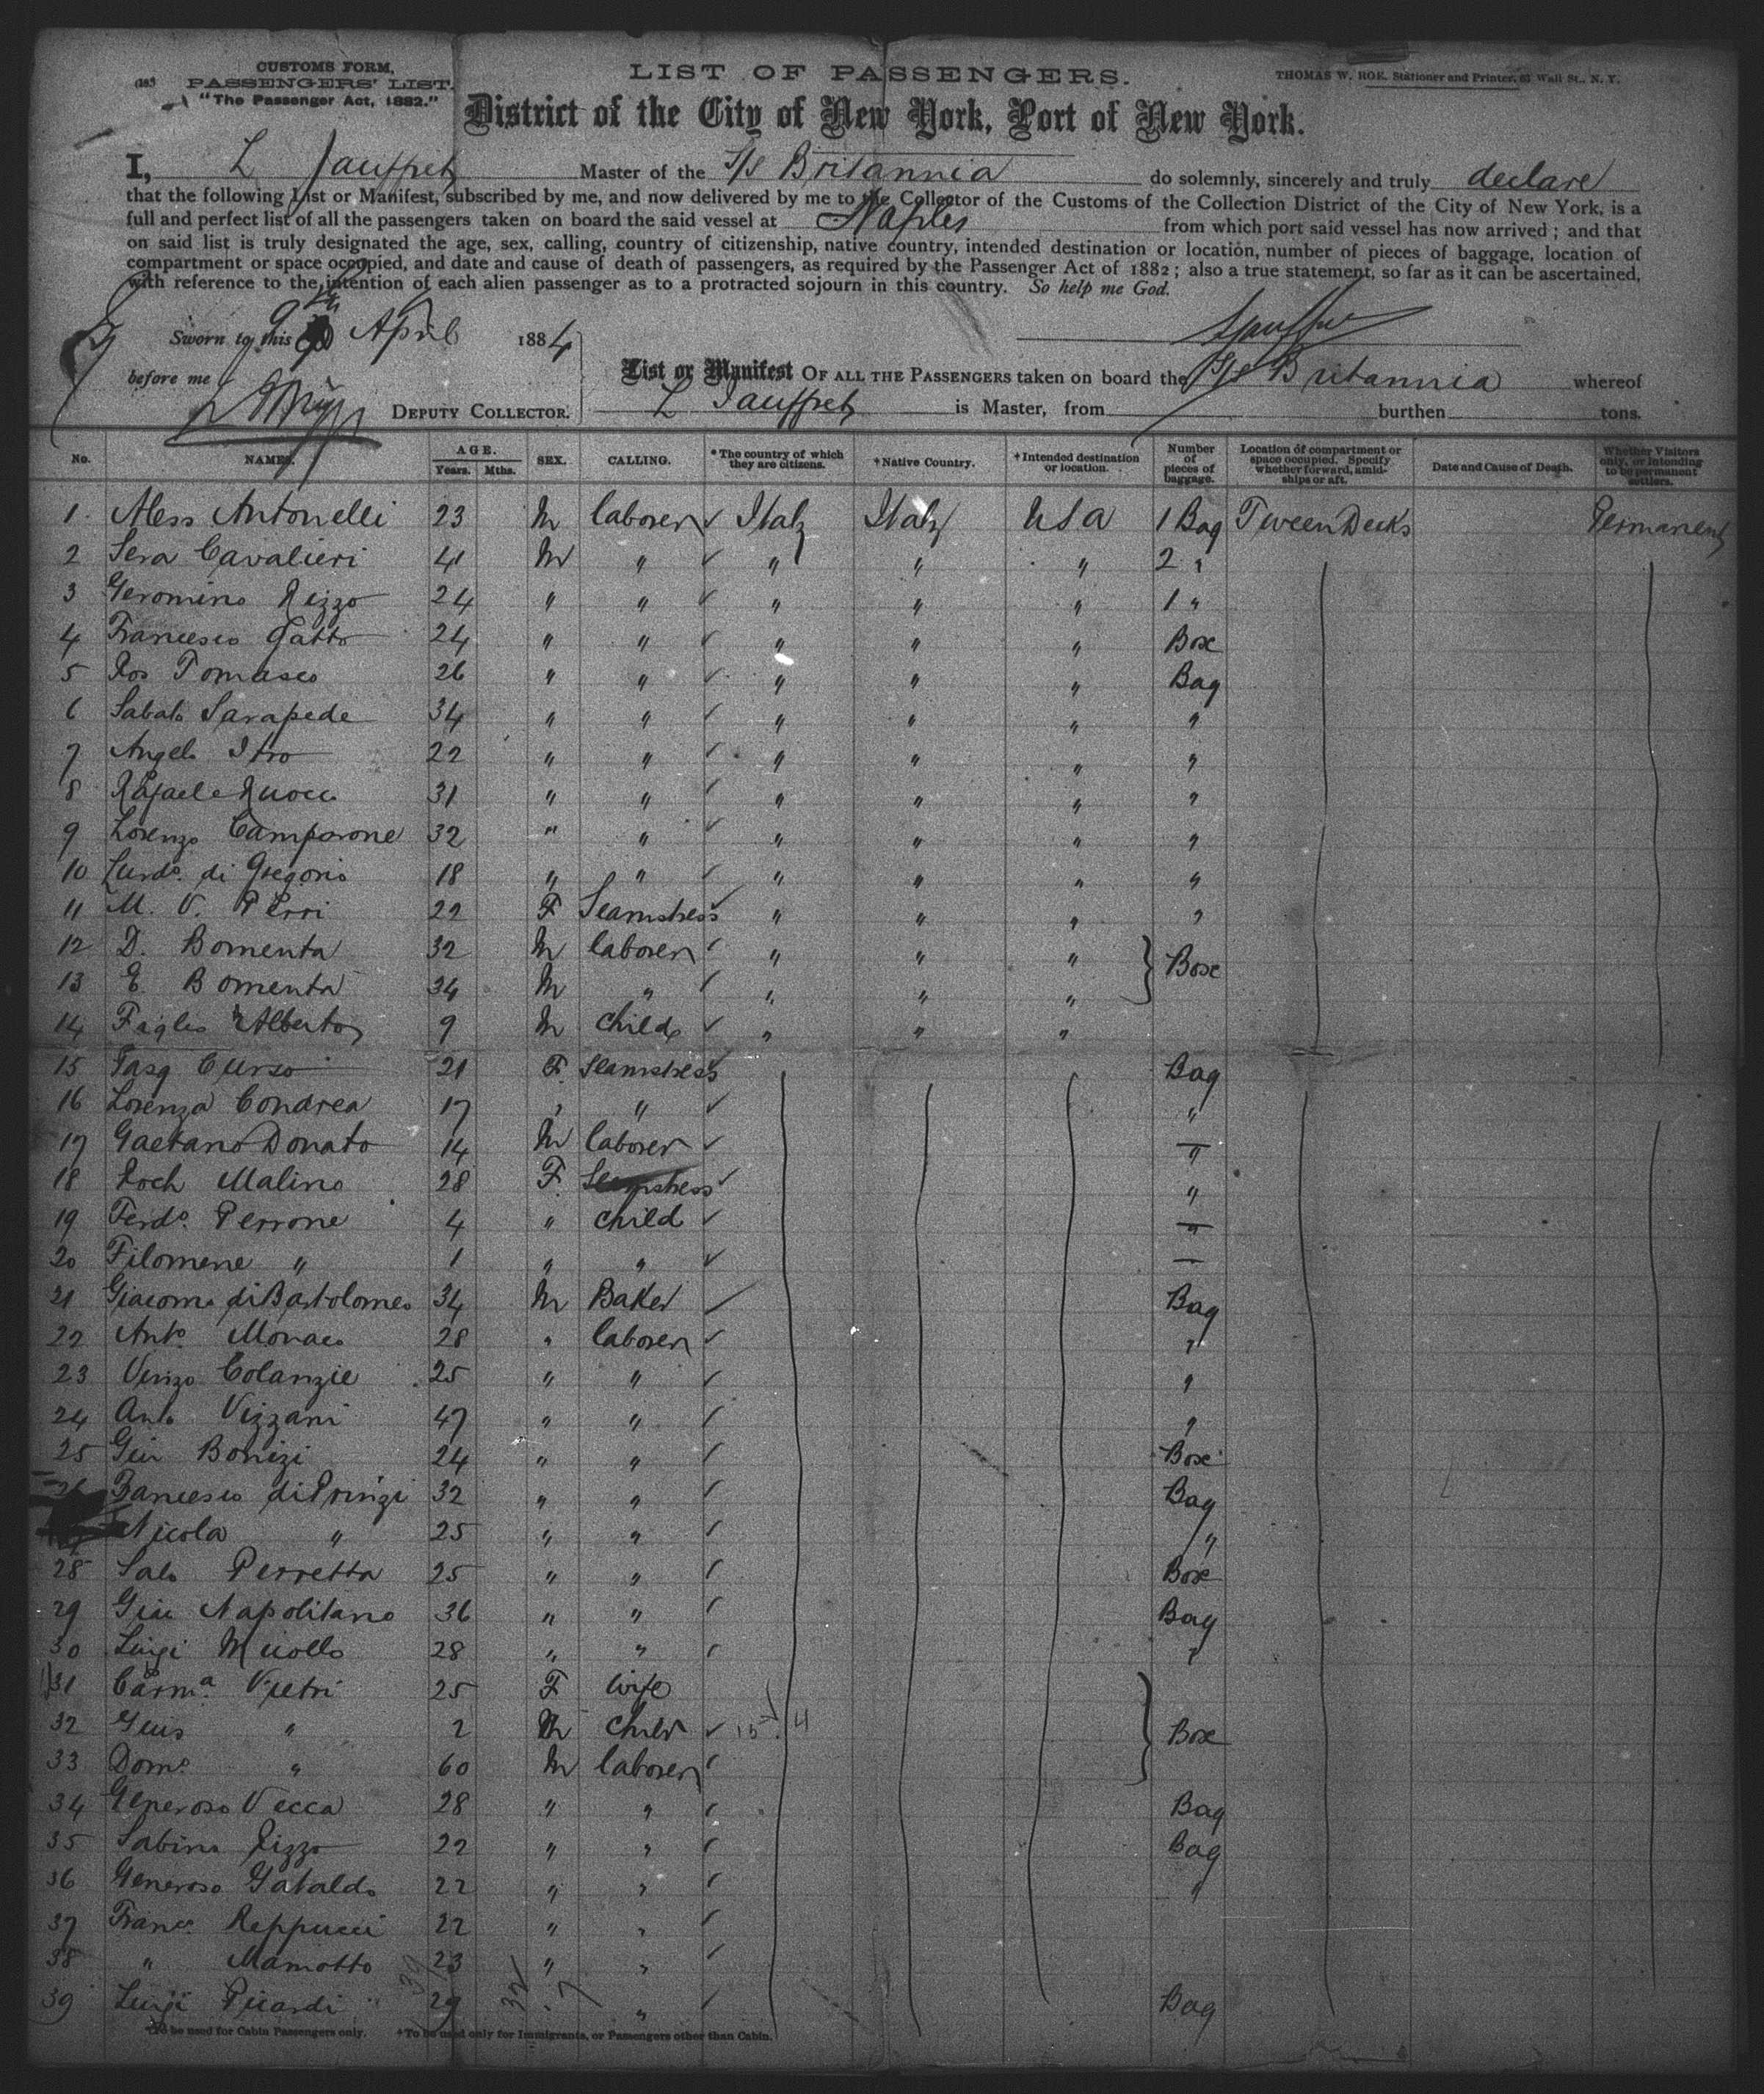 CUSTOMS FORM,
PASSENGERS' LIST.
"The Passenger Act, 1882."
LIST OF PASSENGERS.
THOMAS W. ROE, Stationer and Printer, 61 Wall St., N. Y.
District of the City of New York, Port of New York.
I, L Jauffret Master of the S/S Britannia do solemnly, sincerely and truly declare
that the following List or Manifest, subscribed by me, and now delivered by me to the Collector of the Customs of the Collection District of the City of New York, is a
full and perfect list of all the passengers taken on board the said vessel at Naples from which port said vessel has now arrived; and that
on said list is truly designated the age, sex, calling, country of citizenship, native country, intended destination or location, number of pieces of baggage, location of
compartment or space occupied, and date and cause of death of passengers, as required by the Passenger Act of 1882; also a true statement, so far as it can be ascertained,
with reference to the intention of each alien passenger as to a protracted sojourn in this country. So help me God.
Sworn to this 9th April 1884
before me
DEPUTY COLLECTOR.
List or Manifest OF ALL THE PASSENGERS taken on board the S/S Britannia whereof
L Jauffret is Master, from burthen tons.
No. NAMES. AGE. Years. Mths. SEX. CALLING. *The country of which they are citizens. †Native Country. †Intended destination or location. Number of pieces of baggage. Location of compartment or space occupied. Specify whether forward, amidships or aft. Date and Cause of Death. Whether Visitors only, or intending to be permanent settlers.
1 Aless Antonelli 23 M laborer Italy Italy USA 1 Bag Tween Decks Permanent
2 Sera Cavalieri 41 M " " " " 2 "
3 Geromino Rizzo 24 " " " " " 1 "
4 Francesco Gatto 24 " " " " " Box
5 Ros Tomasco 26 " " " " " Bag
6 Sabato Sarapede 34 " " " " " "
7 Angelo Itro 22 " " " " " "
8 Rafaele Ruocco 31 " " " " " "
9 Lorenzo Camparone 32 " " " " " "
10 di Gregorio 18 " " " " " "
11 M. V. Perri 22 F Seamstress " " " "
12 D. Bomenta 32 M laborer " " " Box
13 E. Bomenta 34 M " " " "
14 Figlio Alberto 9 M child " " "
15 Pasq Curso 21 F Seamstress Bag
16 Lorenza Condrea 17 " " "
17 Gaetano Donato 14 M laborer "
18 Roch Malino 28 F Seamstress "
19 Ferdo. Perrone 4 " child "
20 Filomene " 1 " " —
21 Giacomo di Bartolomeo 34 M Baker Bag
22 Anto. Monaco 28 " laborer "
23 Vinzo Colanzie 25 " " "
24 Anto Vizzani 47 " " "
25 Giu Bonizi 24 " " Box
26 Francesco di Prinzi 32 " " Bag
Nicola " 25 " " "
28 Salo Perretta 25 " " Box
29 Giu Napolitano 36 " " Bag
30 Luigi Micollo 28 " " "
31 Carma. Vietri 25 F wife
32 Gius " 2 M child 15 4 Box
33 Domo. " 60 M laborer
34 Generoso Vecca 28 " " Bag
35 Sabino Rizzo 22 " " Bag
36 Generoso Gataldo 22 " " "
37 Franco. Reppucci 22 " "
38 " Mamotto 23 " "
39 Luigi Picardi 29 " " Bag
*To be used for Cabin Passengers only. †To be used only for Immigrants, or Passengers other than Cabin.